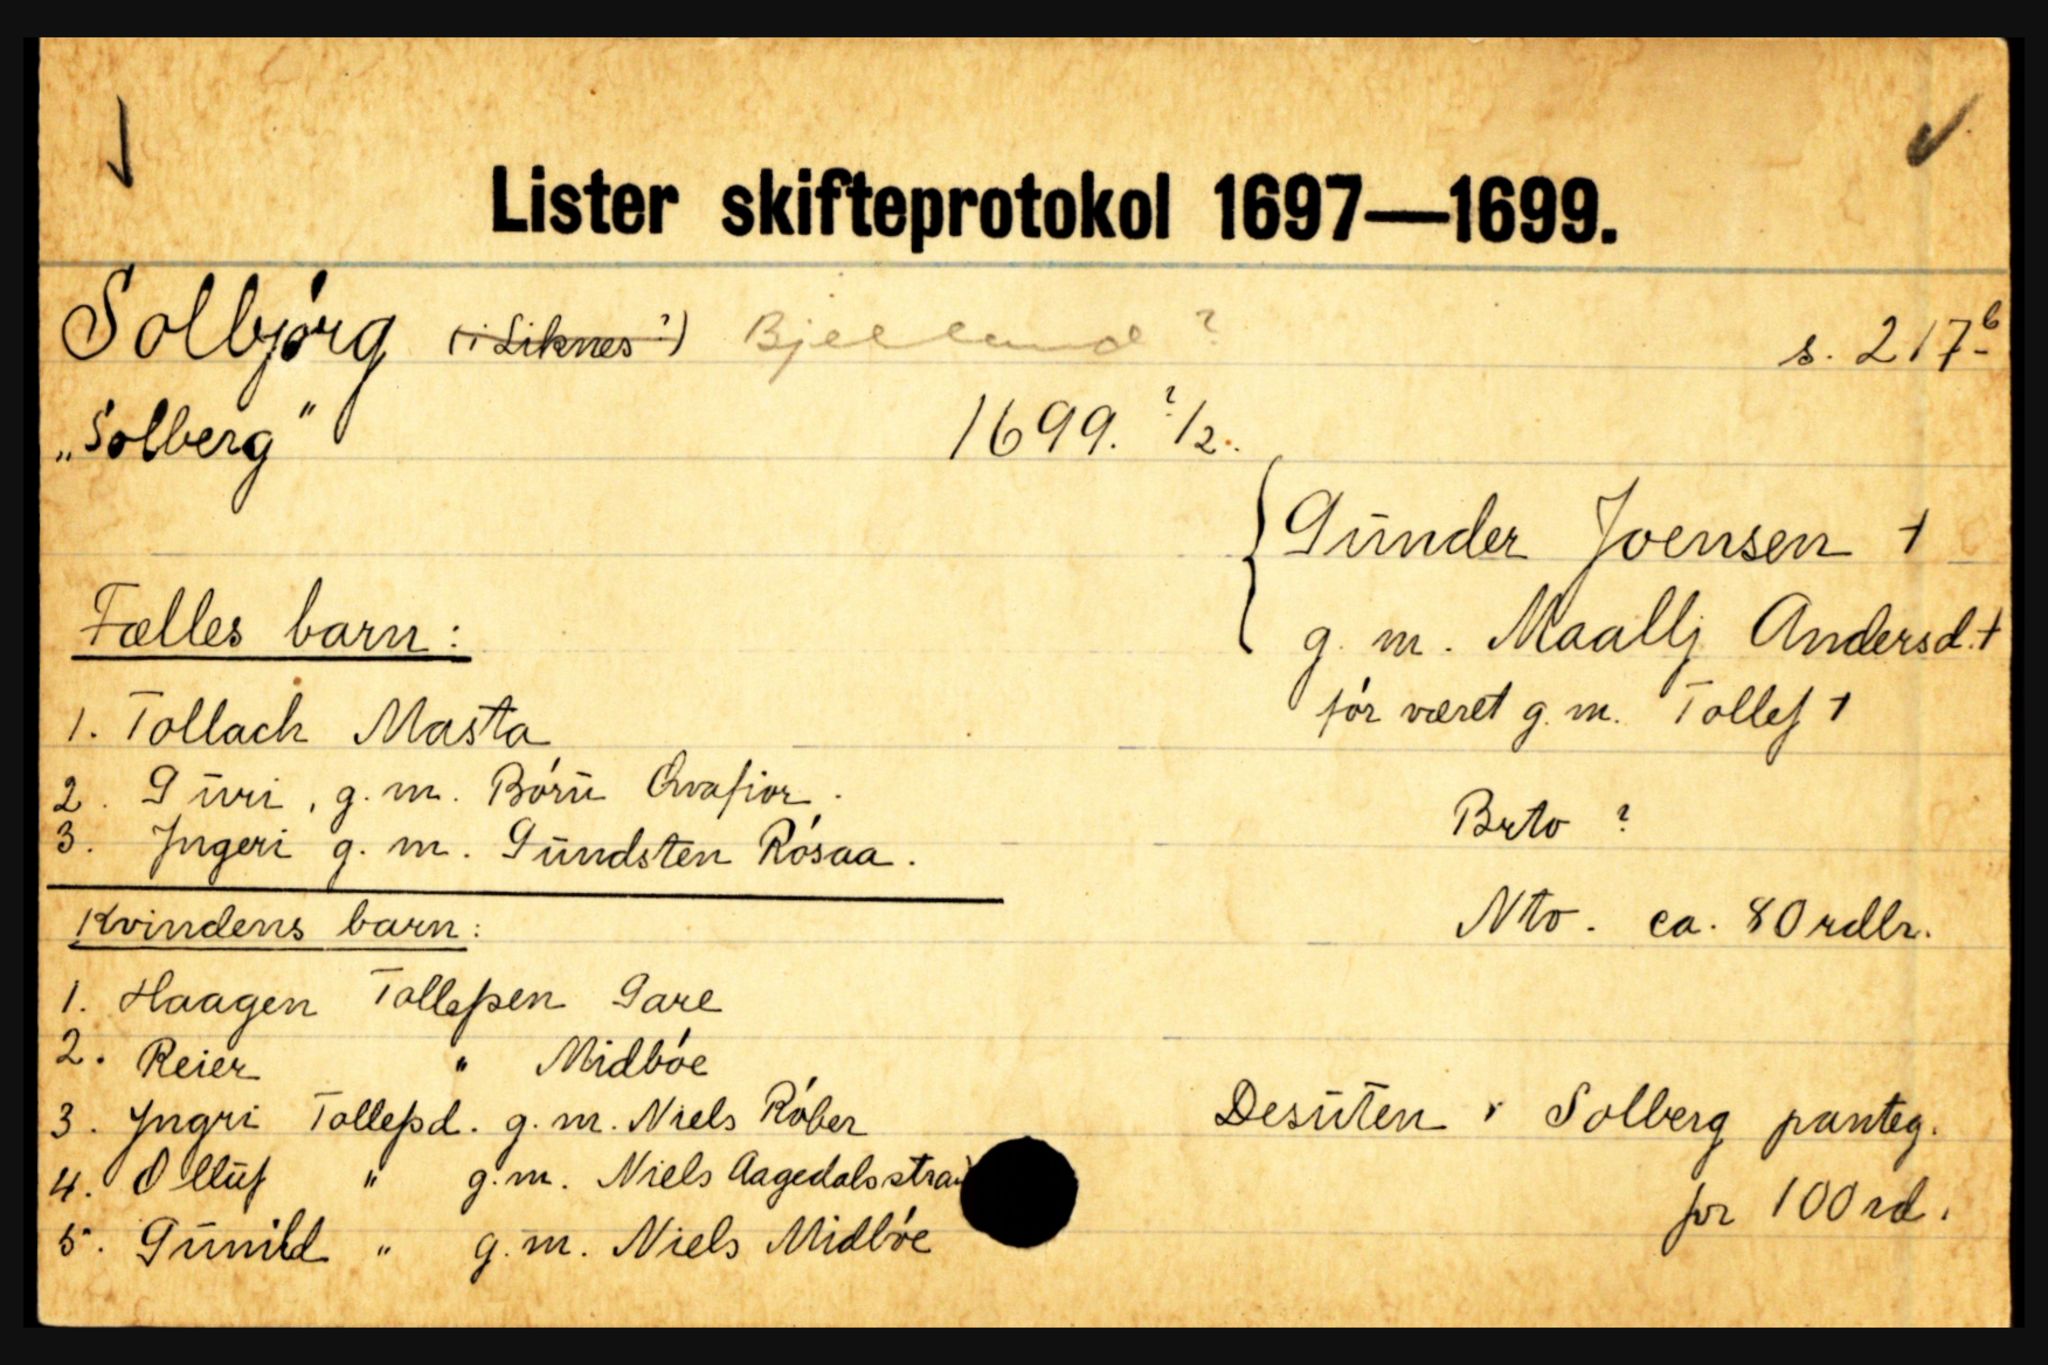 Lister skifteprotokol 1697—1699.
Solbjørg (i Liknes?) Bjelland? s. 217b
„Solberg" 1699. ?/2.
Gunder Joensen †
g. m. Maallj Andersd. †
før været g. m. Tollef †
Fælles barn:
1. Tollach Masta
2. Guri, g. m. Børu Qvafior.
3. Jngeri g. m. Gundsten Røsaa.
Brto ?
Nto. ca. 80 rdlr.
Kvindens barn:
1. Haagen Tollefsen Gare
2. Reier " Midbøe
3. Jngri Tollefsd. g. m. Niels Røber
4. Olluf " g. m. Niels Aagedalsstra
5. Gunild " g. m. Niels Midbøe
Desuten i Solberg panteg.
for 100 rd.